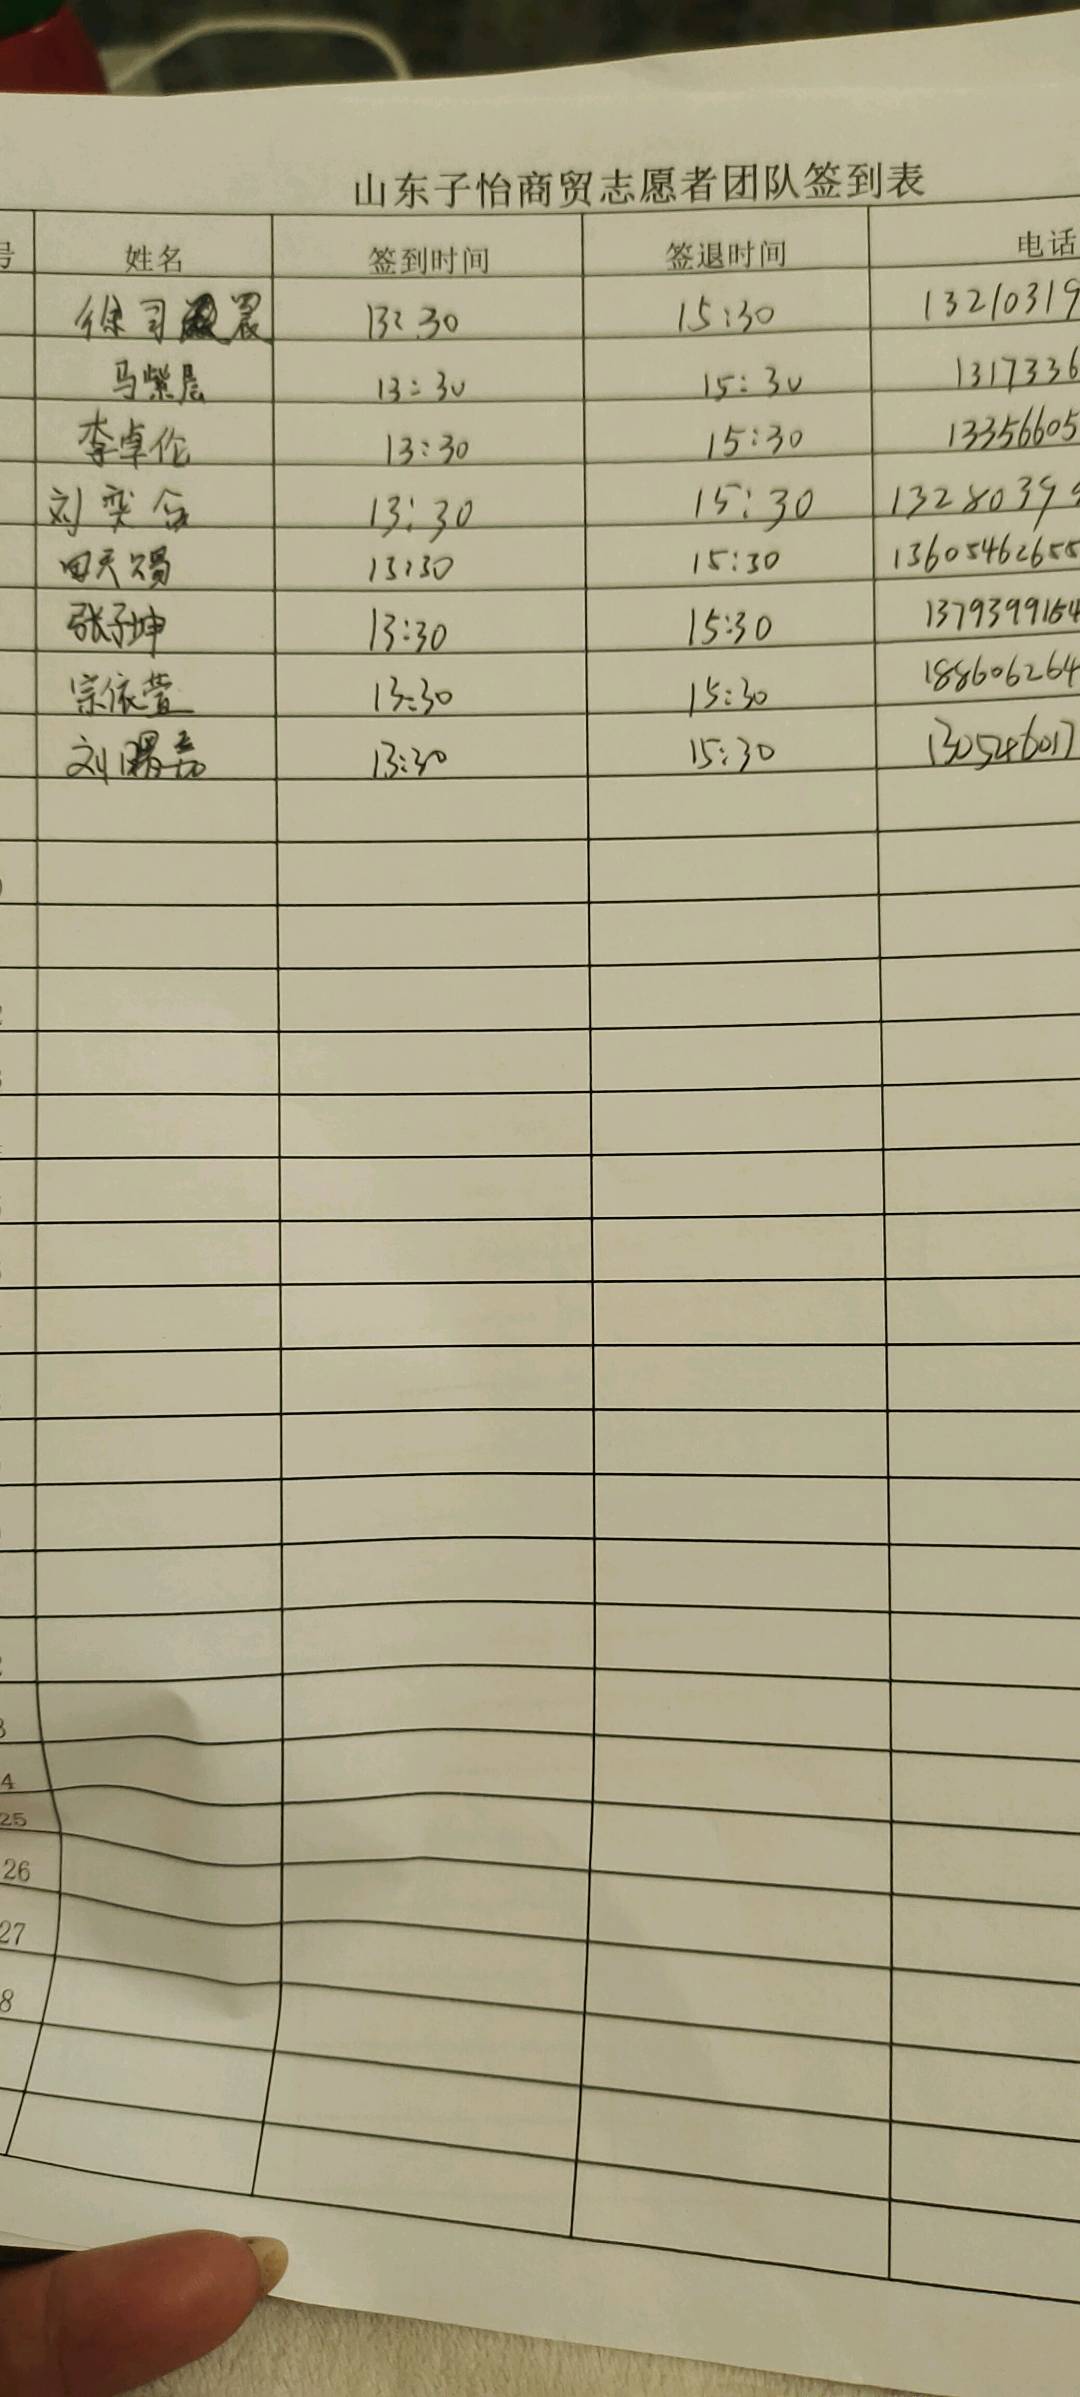 山东子怡商贸志愿者团队签到表
号 姓名 签到时间 签退时间 电话
徐司晨 13:30 15:30 13210319
马紫辰 13:30 15:30 1317336
李卓伦 13:30 15:30 13356605
刘奕 13:30 15:30 1328039
田天赐 13:30 15:30 13605462655
张子坤 13:30 15:30 1379399164
宗依萱 13:30 15:30 188606264
刘曙嘉 13:30 15:30 130546017
4
25
26
27
8